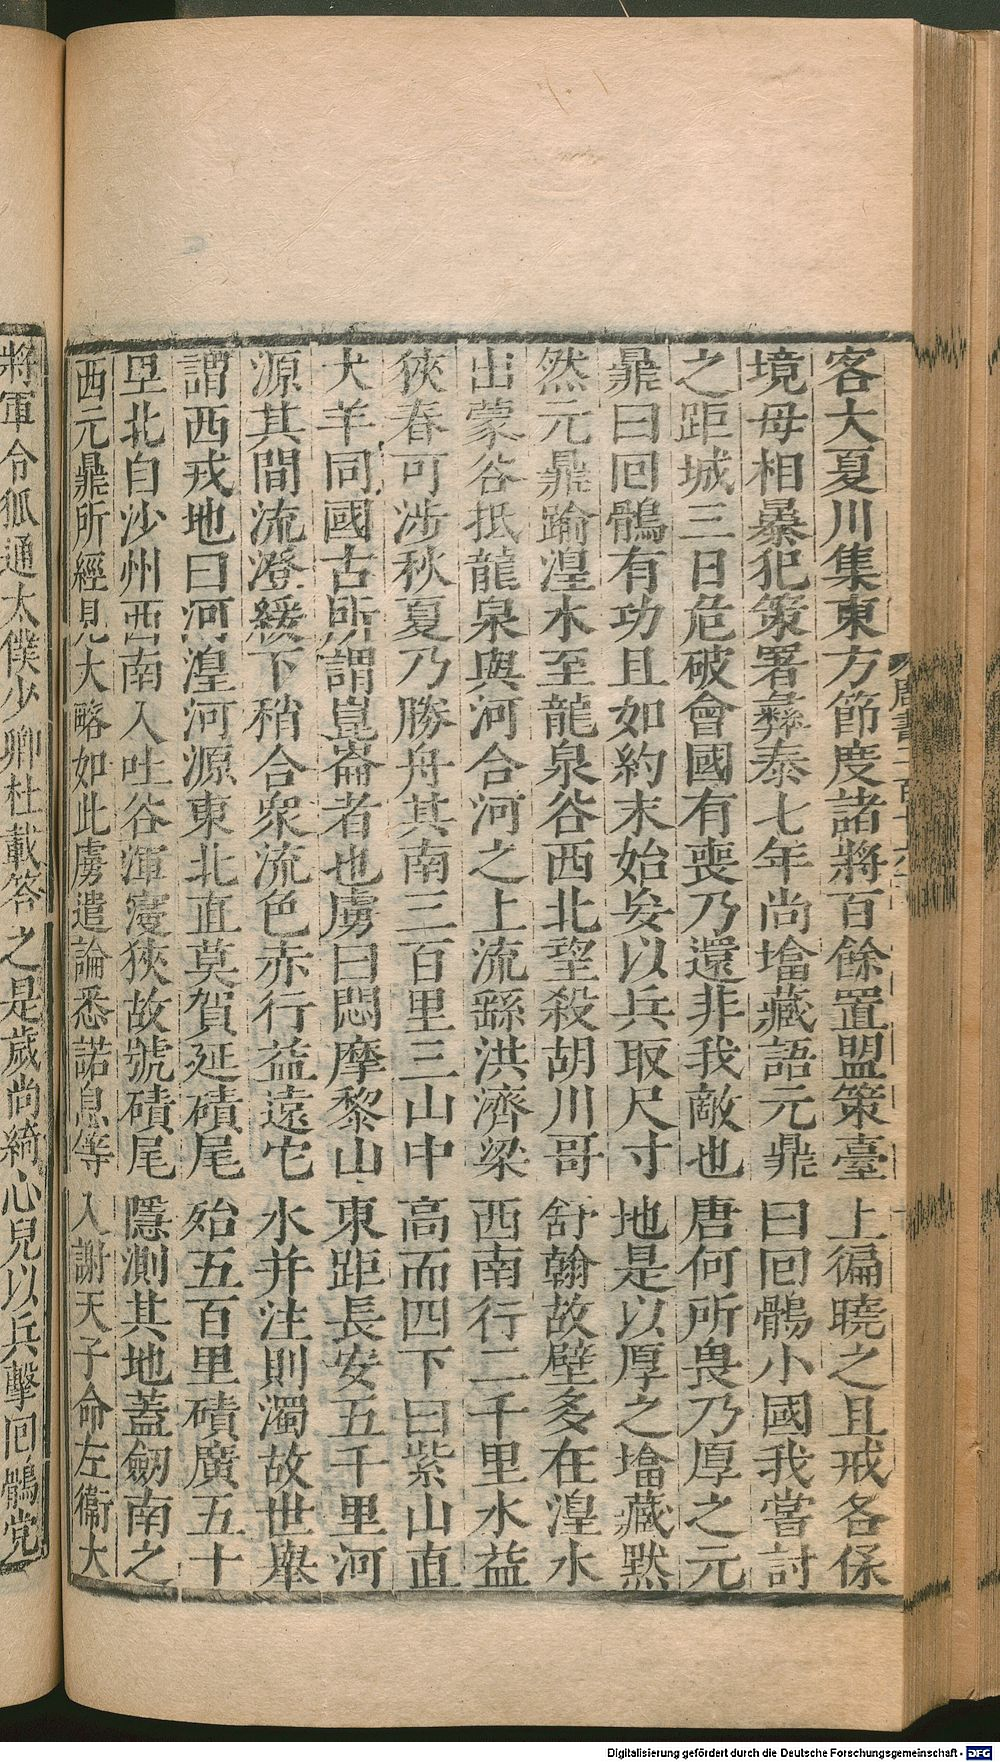 客大夏川集東方節度諸將百餘置盟策臺上徧曉之且戒各保
境毋相暴犯策署彝泰七年尚㙮藏語元鼎曰回鶻小國我嘗討
之距城三日危破會國有喪乃還非我敵也唐何所畏乃厚之元
鼎曰回鶻有功且如約未始妄以兵取尺寸地是以厚之㙮藏黙
然元鼎踰湟水至龍泉谷西北望殺胡川哥舒翰故壁多在湟水
出蒙谷抵龍泉與河合河之上流繇洪濟梁西南行二千里水益
狹春可涉秋夏乃勝舟其南三百里三山中高而四下曰紫山直
大羊同國古所謂崑崙者也虜曰悶摩黎山東距長安五千里河
源其間流澄緩下稍合衆流色赤行益遠它水并注則濁故世舉
謂西戎地曰河湟河源東北直莫賀延磧尾殆五百里磧廣五十
里北自沙州西南入吐谷渾寖狹故號磧尾隱測其地蓋劒南之
西元鼎所經見大略如此虜遣論悉諾息等入謝天子命左衞大
將軍令狐通太僕少卿杜載答之是歲尚綺心兒以兵擊回鶻党
Digitalisierung gefördert durch die Deutsche Forschungsgemeinschaft - DFG